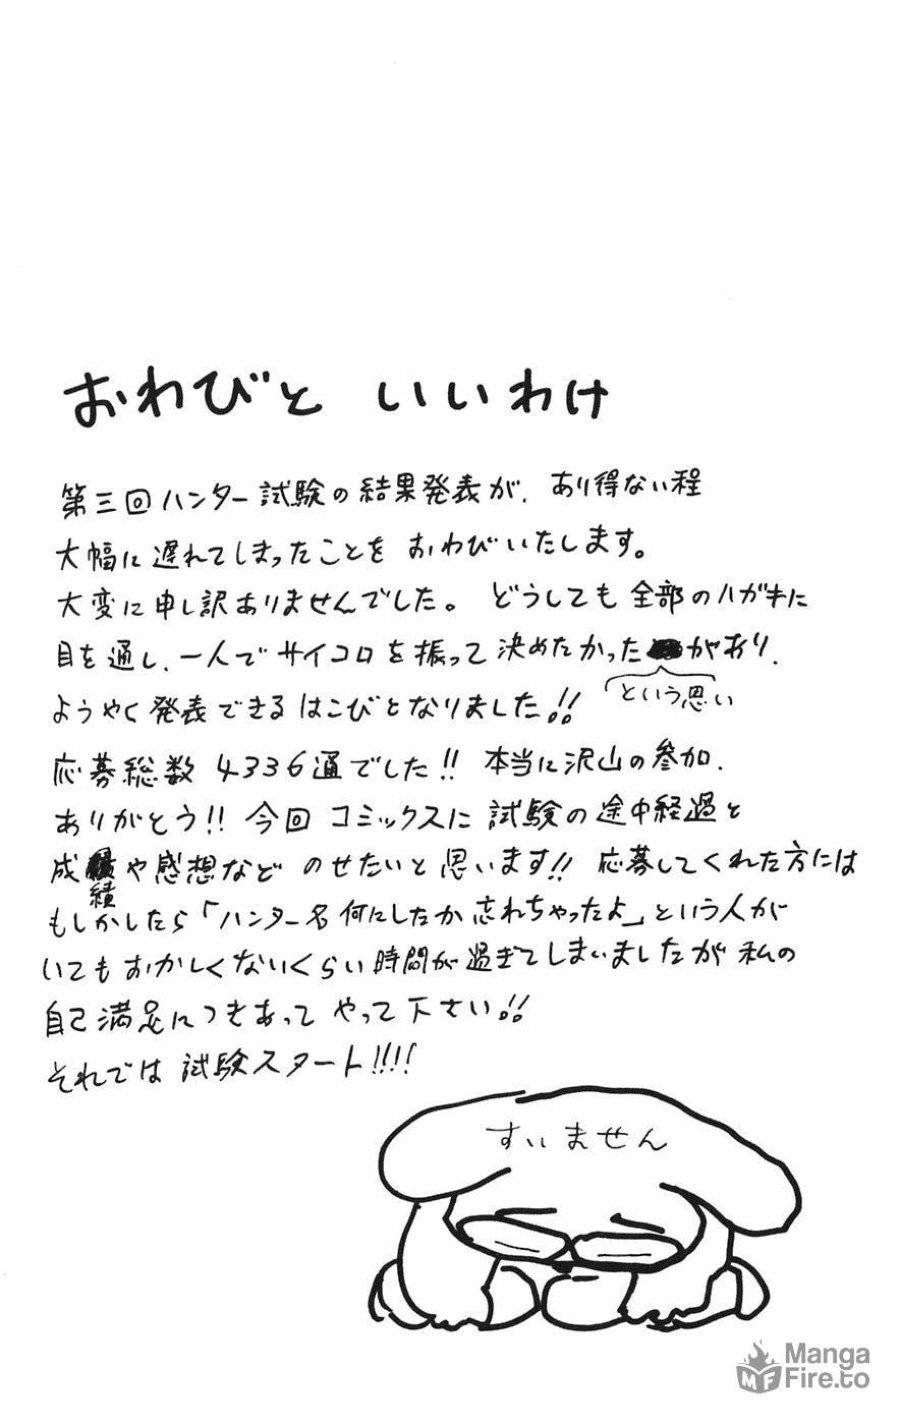 おわびと いいわけ
第三回ハンター試験の結果発表が、あり得ない程
大幅に遅れてしまったことを おわびいたします。
大変に申し訳ありませんでした。 どうしても全部のハガキに
目を通し、一人でサイコロを振って決めたかったがあり、
という思い
ようやく発表できるはこびとなりました!!
応募総数 4336通でした!! 本当に沢山の参加、
ありがとう!! 今回 コミックスに 試験の途中経過と
成や感想など のせたいと思います!! 応募してくれた方には
績
もしかしたら「ハンター名何にしたか忘れちゃったよ」という人が
いてもおかしくないくらい時間が過ぎてしまいましたが 私の
自己満足につきあって やって下さい!!
それでは 試験スタート!!!!
すいません
Manga
Fire.to
MF